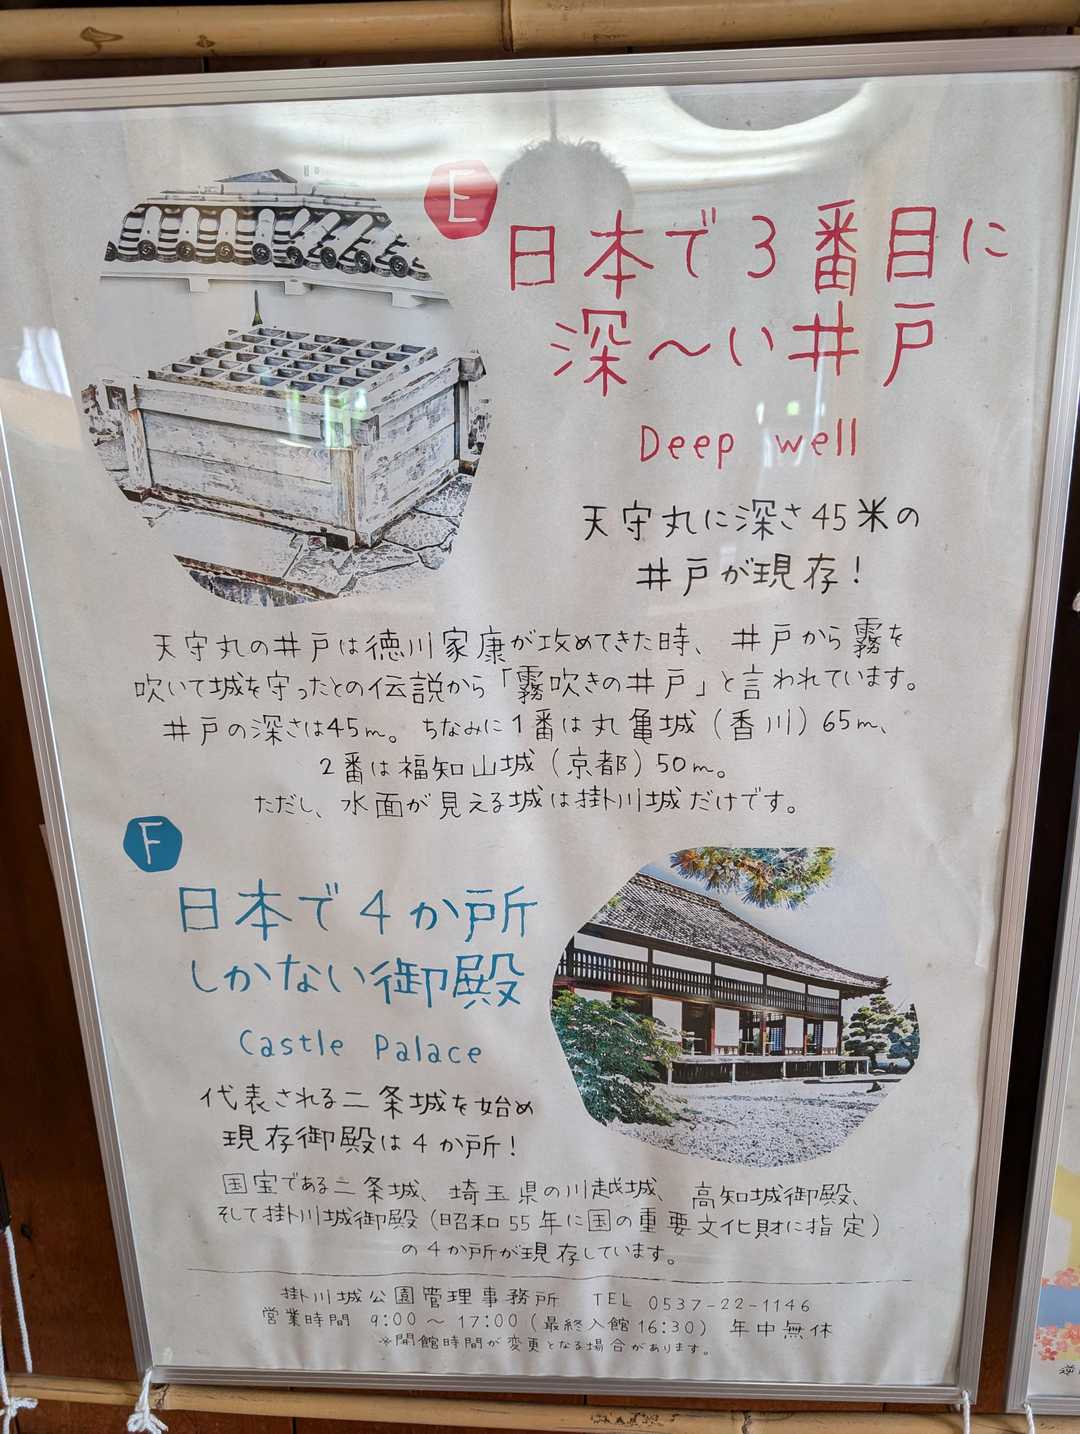 E
日本で3番目に
深〜い井戸
Deep well
天守丸に深さ45米の
井戸が現存！
天守丸の井戸は徳川家康が攻めてきた時、井戸から霧を
吹いて城を守ったとの伝説から「霧吹きの井戸」と言われています。
井戸の深さは45m。ちなみに1番は丸亀城（香川）65m、
2番は福知山城（京都）50m。
ただし、水面が見える城は掛川城だけです。
F
日本で4か所
しかない御殿
Castle Palace
代表される二条城を始め
現存御殿は4か所！
国宝である二条城、埼玉県の川越城、高知城御殿、
そして掛川城御殿（昭和55年に国の重要文化財に指定）
の4か所が現存しています。
掛川城公園管理事務所 TEL 0537-22-1146
営業時間 9:00〜17:00（最終入館16:30）年中無休
※開館時間が変更となる場合があります。